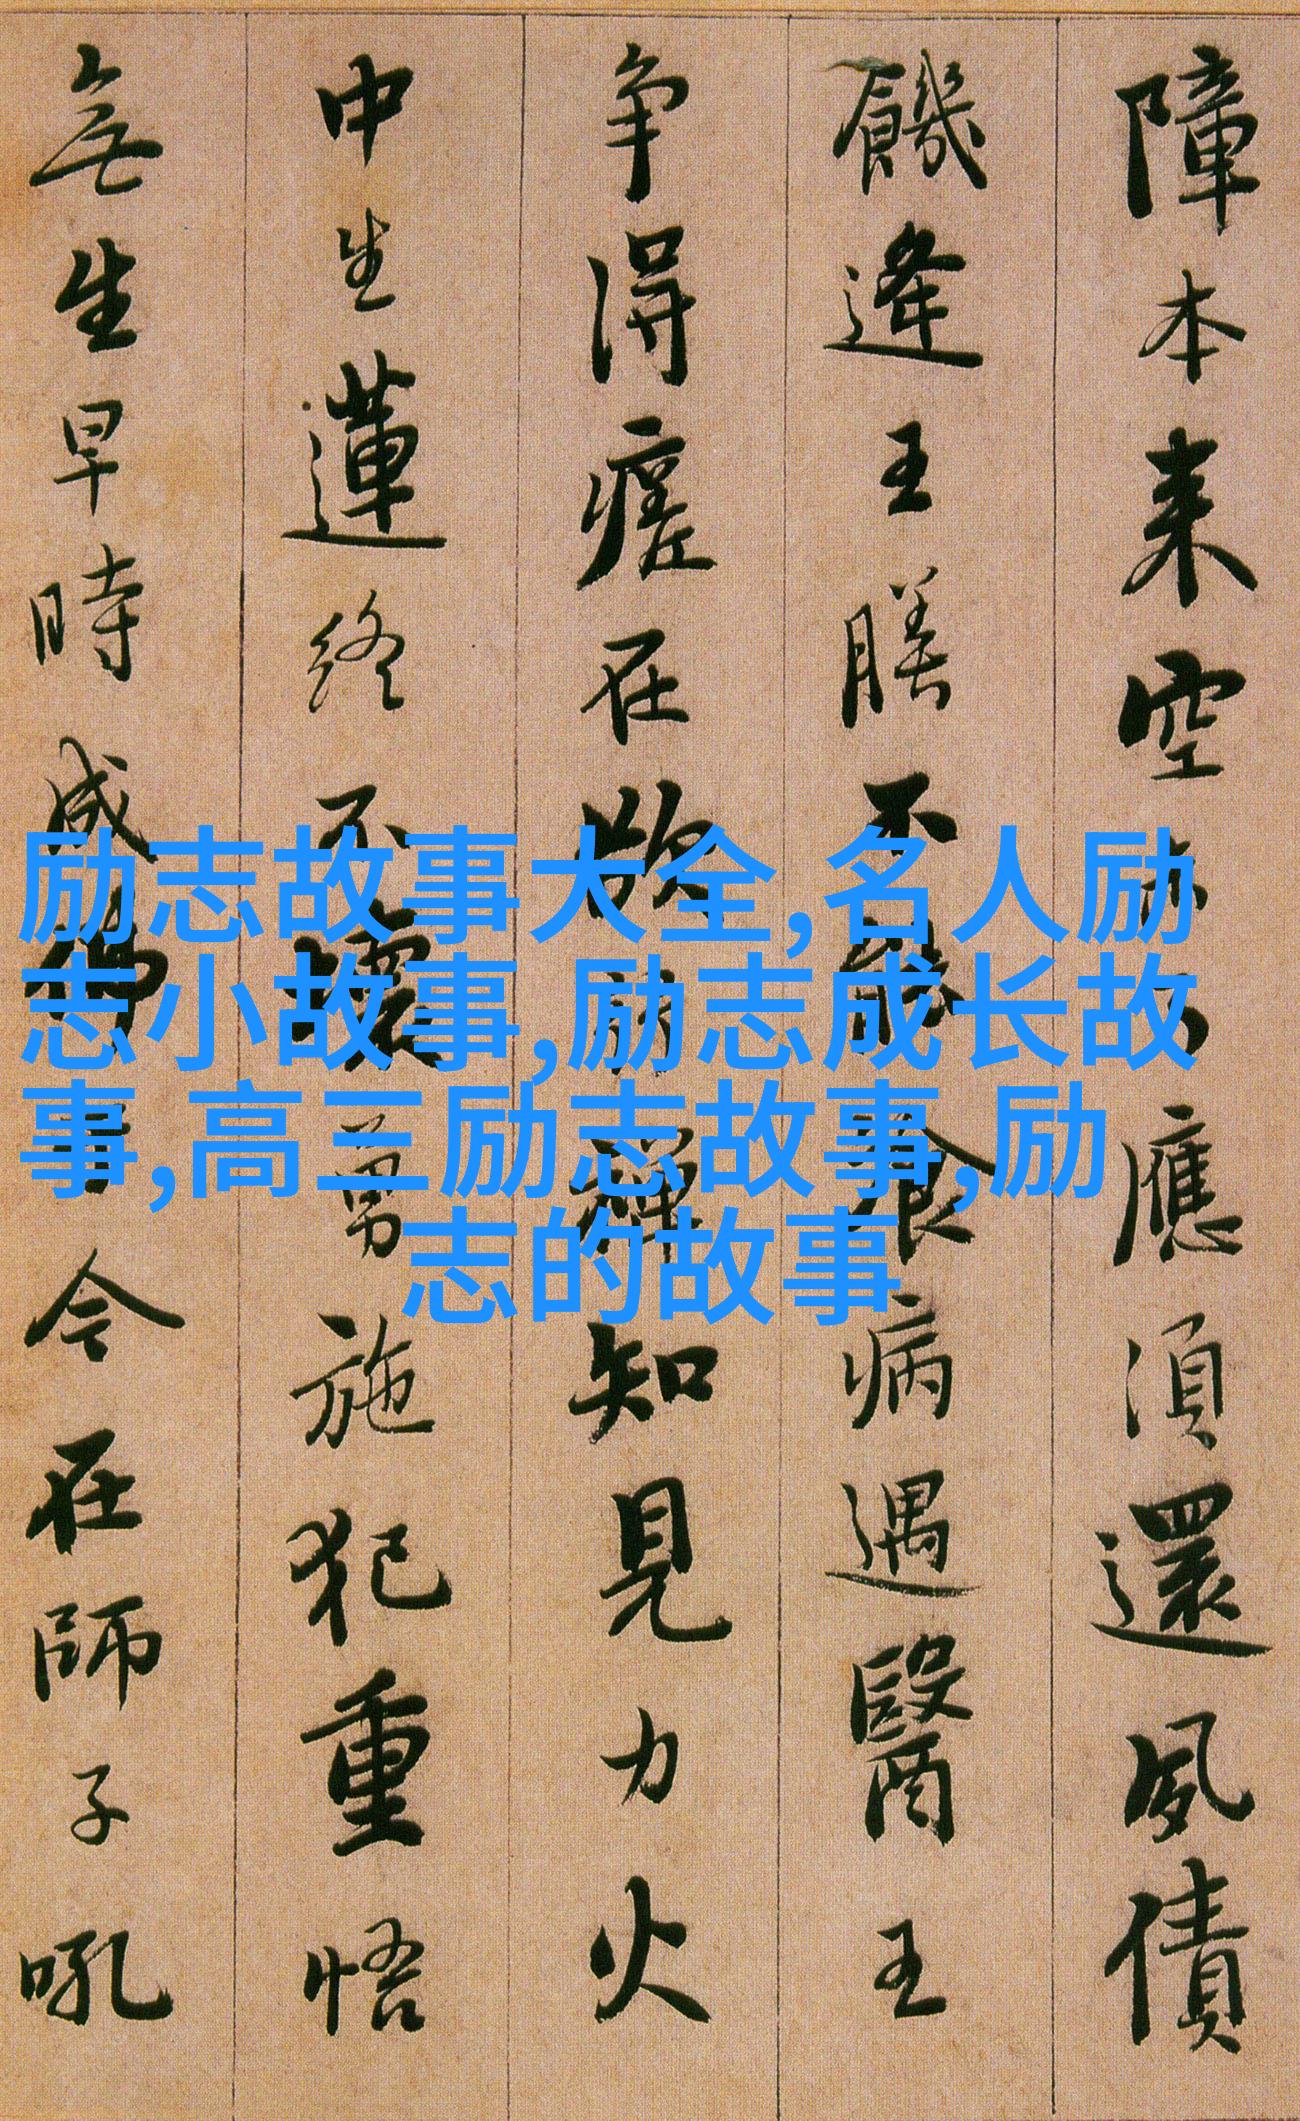 障本来空應須還夙債
饑逢王膳不能病遇醫王
争得瘥在欲行禪知見力火
中生蓮終不壞勇施犯重悟
無生早時成佛今在師子吼
励志故事大全,名人励
志小故事,励志成长故
事,高三励志故事,励
志的故事